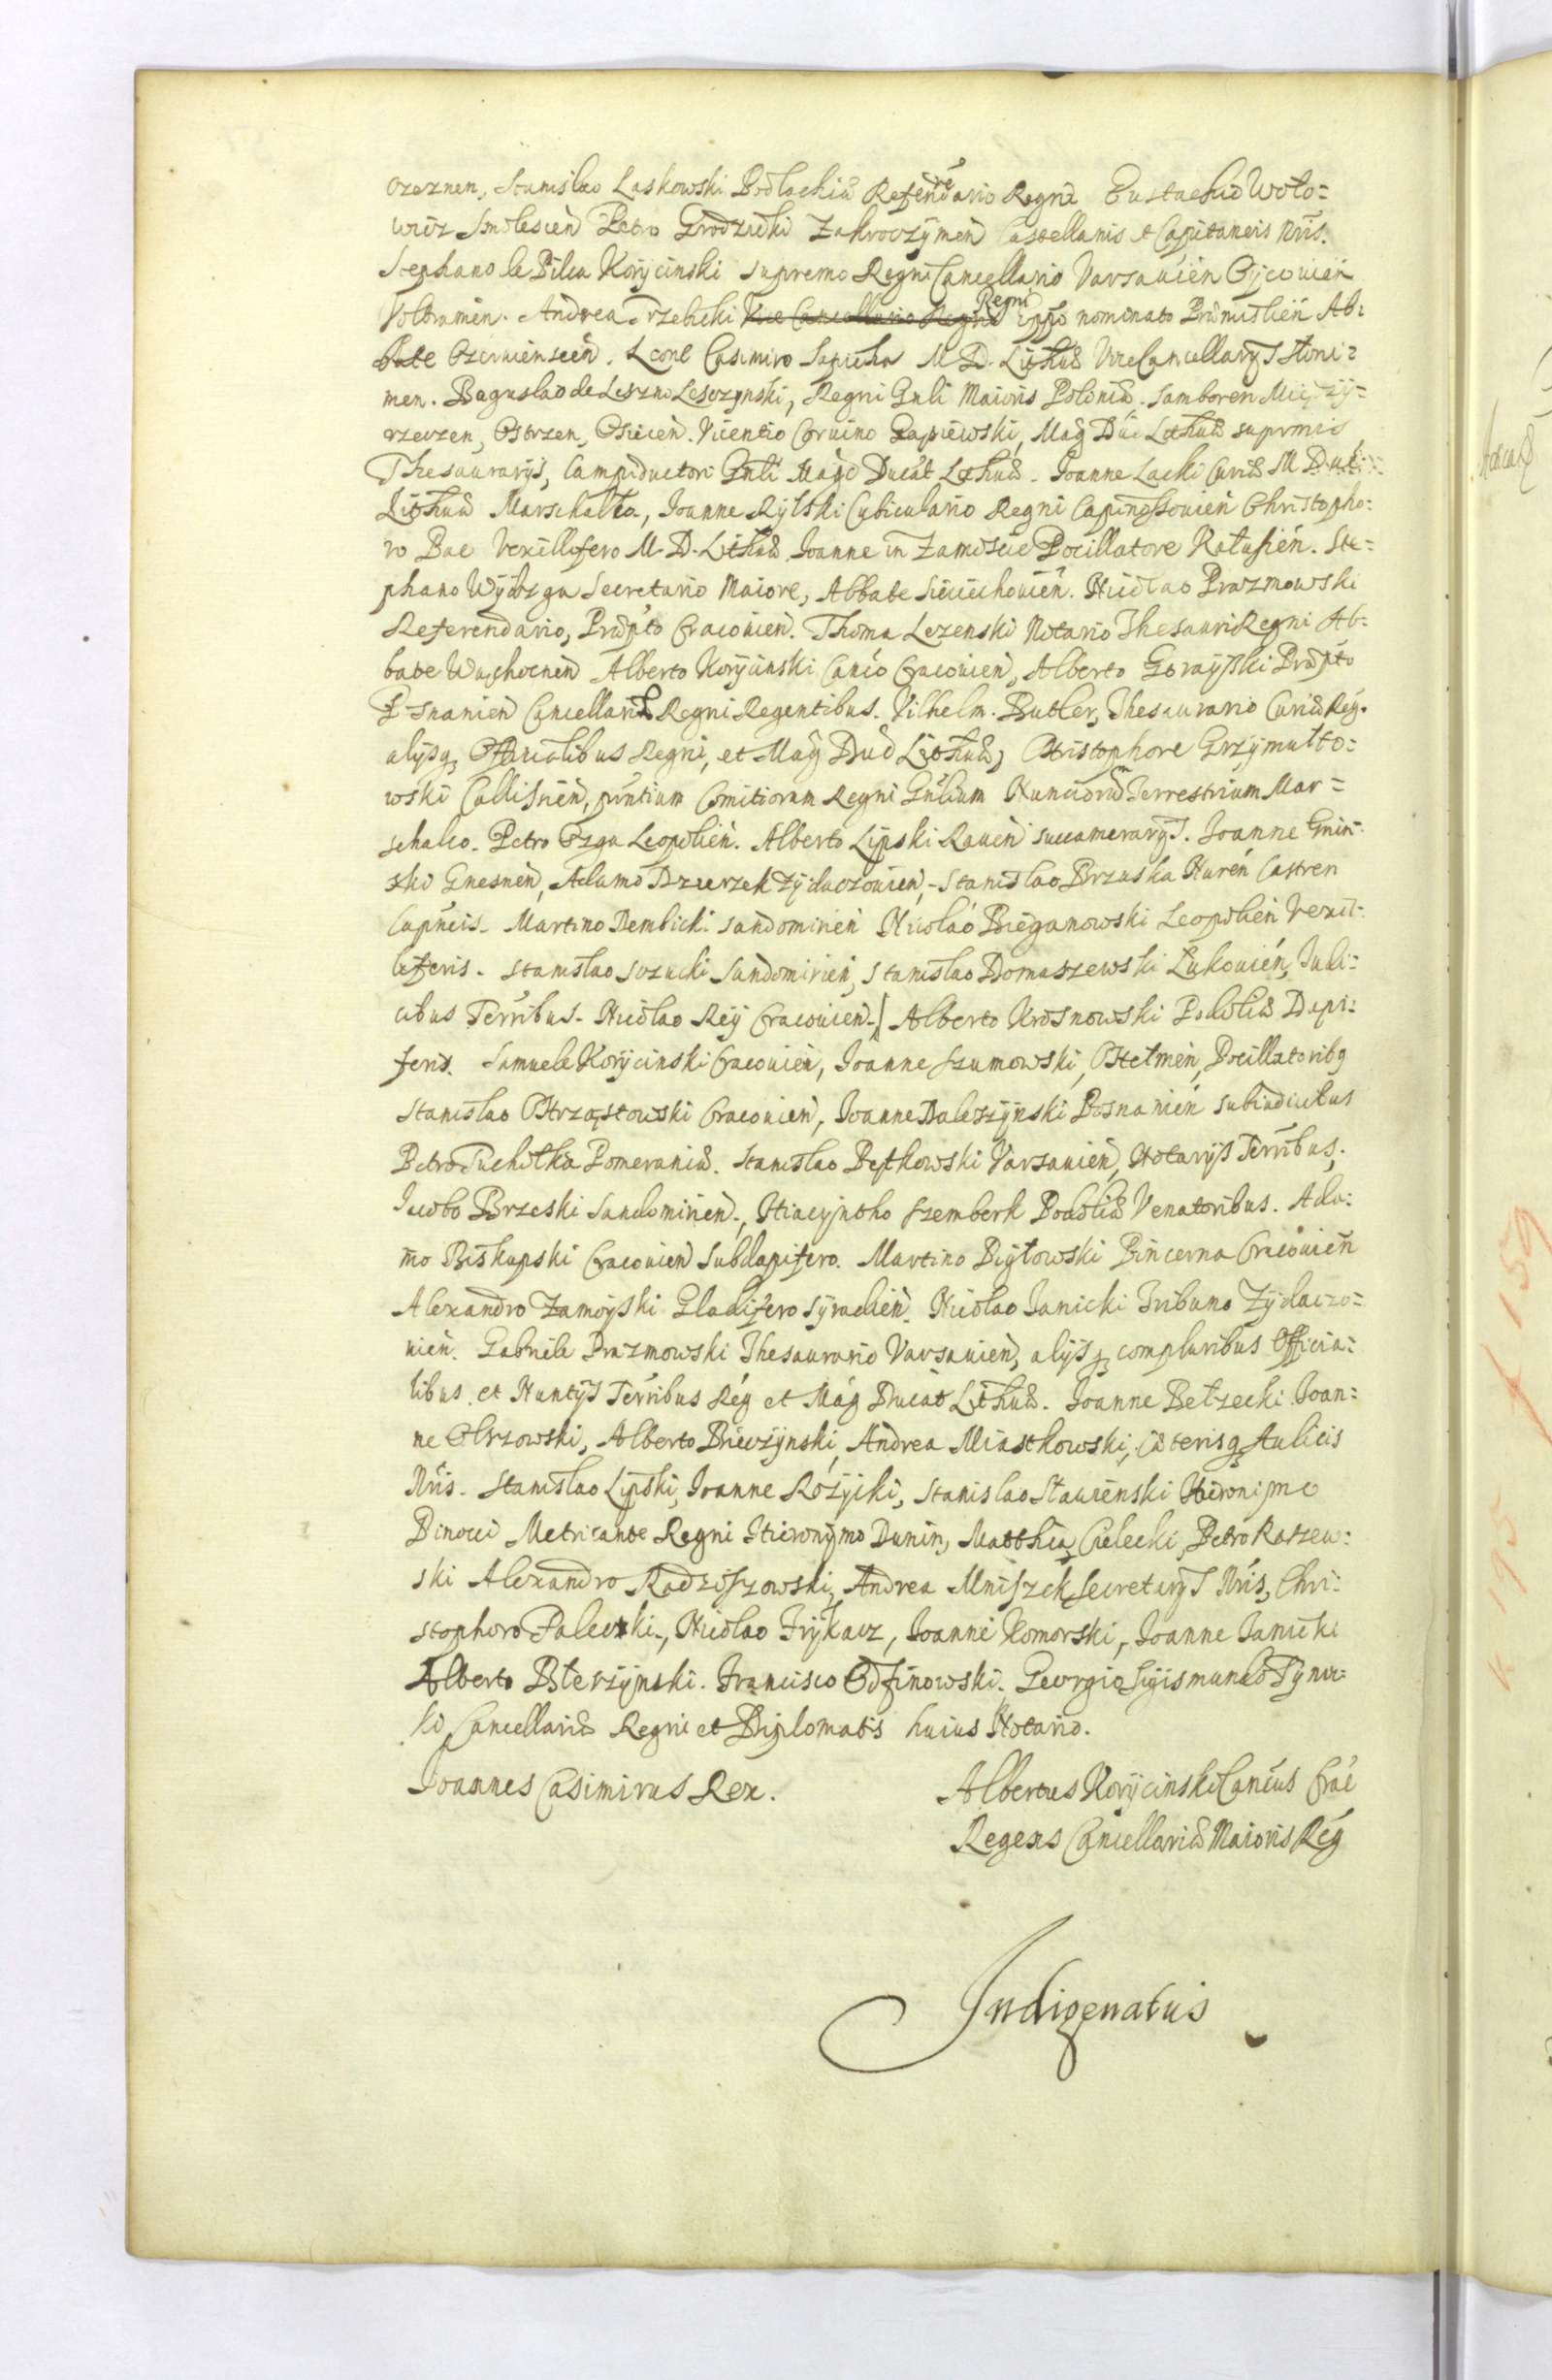 czeznen, Stanislao Laskowski Podlachiæ Referendario Regni Eustachio Woło=
wicz Smolescien Petro Grodzicki Zakroczÿmen Castellanis et Capitaneis Nris.
Stephano de Pilca Korÿcinski Supremo Regni Cancellario Varsauien Oÿcouien
Volbramen. Andrea Trzebicki Vice Cancellario Regni Regni Eppo nominato Præmislien Ab=
bate Czeruienscen. Leone Casimiro Sapieha M D. Lithuæ ViceCancellarÿs Słoni=
men. Boguslao de Leszno Lesczynski, Regni Gnli Maioris Poloniæ. Samboren Międzÿ=
rzeczen, Ostrzen, Osiecen. Vicentio Coruino Gąsiewski, Mag Duc Lithuæ supremo
Thesaurarÿs, Campiductori Gnli Magc Ducat Lithuæ. Joanne Lacki Curiæ M Ducti=
Lithuæ Marschalco, Joanne Rÿlski Cubiculario Regni Capinossouien Christopho=
ro Pac Vexillifero M. D. Lithuæ Joanne in Zamoscie Pocillatore Kałusien. Ste=
phano Wÿdzga Secretario Maiore, Abbate Sieciechouien. Nicolao Prazmowski
Referendario, Præpto Cracouien. Thoma Lezenski Notario Thesauri Regni Ab=
bate Wąchocnen Alberto Korÿcinski Canco Cracouien, Alberto Gorayski Præpto
Posnanien Cancellariæ Regni Regentibus. Vilhelm. Butler, Thesaurario Curiæ Reg.
alÿsq Officialibus Regni, et Mag Duc Lithuæ, Christophoro Grzÿmułto=
wski Callisnen, pntium Comitiorum Regni Gnlium Nunciorũ Terrestrium Mar=
schalco. Petro Ozga Leopolien. Alberto Lipski Rauen succamerarÿs. Joanne Gnin=
ski Gnesnen, Adamo Dzierzek Zÿdaczouien, Stanislao Brzuska Nuren Castren
Capneis. Martino Dembicki Sandomirien Nicolao Bieganowski Leopolien Vexil=
liferis. Stanislao Sozacki Sandomirien, Stanislao Domaszewski Łukouien, Iudi=
cibus Terribus. Nicolao Reÿ Cracouien. Alberto Krosnowski Podoliæ Dapi=
feris. Samuele Korÿcinski Cracouien, Joanne Szumowski, Chelmen, Pocillatoribq
Stanislao Chrząstowski Cracouien, Joanne Daleszÿnski Posnanien subiudicibus
Petro Tuchołka Pomeraniæ. Stanislao Pętkowski Varsauien, Notarÿs Terribus,
Jacobo Brzeski Sandomirien, Hiacÿntho Szemberk Podoliæ Venatoribus. Ada=
mo Biskupski Cracouien Subdapifero. Martino Digłowski Pincerna Cracouien
Alexandro Zamoÿski Gladifero Sÿradien. Nicolao Janicki Tribuno Zÿdaczo=
uien. Gabriele Prazmowski Thesaurario Varsauien, alÿsq compluribus Officia=
libus et Nuntÿs Terribus Reg et Mag Ducat Lithuæ. Joanne Bełzecki Joan=
ne Chrzowski, Alberto Brieczÿnski, Andrea Miaskowski, cæterisq Aulicis
Nris. Stanislao Lipski, Joanne Rózÿcki, Stanislao Stawienski Hieronimo
Pinocci Metricante Regni Hieronÿmo Dunin, Matthia Cielecki, Petro Karzew=
ski Alexandro Radziszowski, Andrea Mniszek Secretarÿs Nris, Chri=
stophoro Palecki, Nicolao Trÿkacz, Joanne Komorski, Joanne Janicki
Alberto Pterzÿnski. Francisco Odzinowski. Georgio Sigismundo Tÿnic=
ki Cancellariæ Regni et Diplomatis huius Notario.
Joannes Casimirus Rex.
Albertus Korÿcinski Cancus Crac
Regens Cancellariæ Maioris Reg
Indigenatus